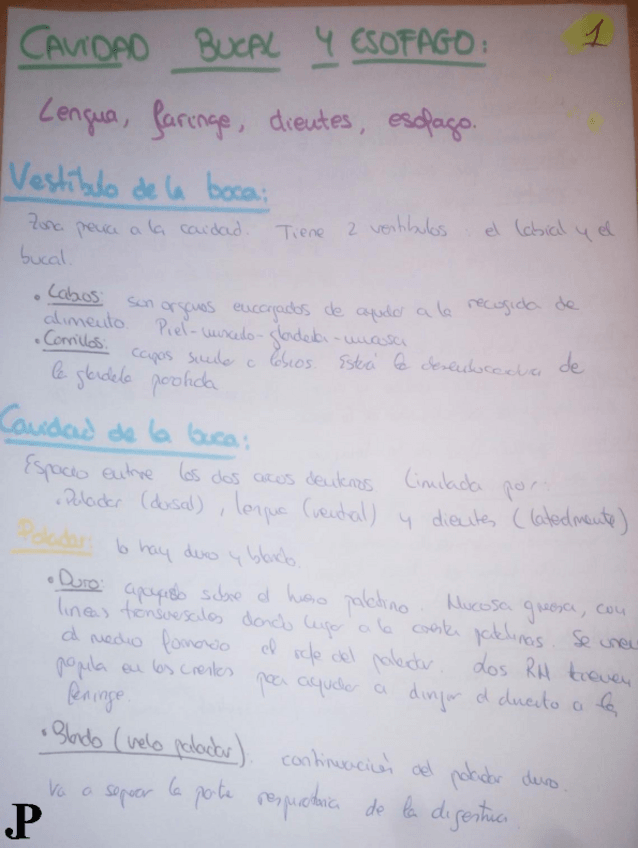 CAVIDAD BUCAL Y ESOFAGO:
1
Lengua, faringe, dientes, esofago.
Vestíbulo de la boca:
Zona previa a la cavidad. Tiene 2 vestíbulos: el labial y el
bucal.
• Labios: son organos encargados de ayudar a la recogida de
alimento. Piel-musculo-glandula-mucosa
• Carrillos: capas similar a labios. Está la desembocadura de
la glandula parotida
Cavidad de la boca:
Espacio entre los dos arcos dentarios. Limitada por:
• Paladar (dorsal), lengua (ventral) y dientes (lateralmente)
Paladar: lo hay duro y blando.
• Duro: apoyado sobre el hueso palatino. Mucosa gruesa, con
lineas transversales dando lugar a la cresta palatinas. Se unen
al medio formando el rafe del paladar. Los RM tienen
papila en las crestas para ayudar a dirigir el alimento a la
faringe.
• Blando (velo paladar) continuación del paladar duro.
Va a separar la parte respiratoria de la digestiva.
JP